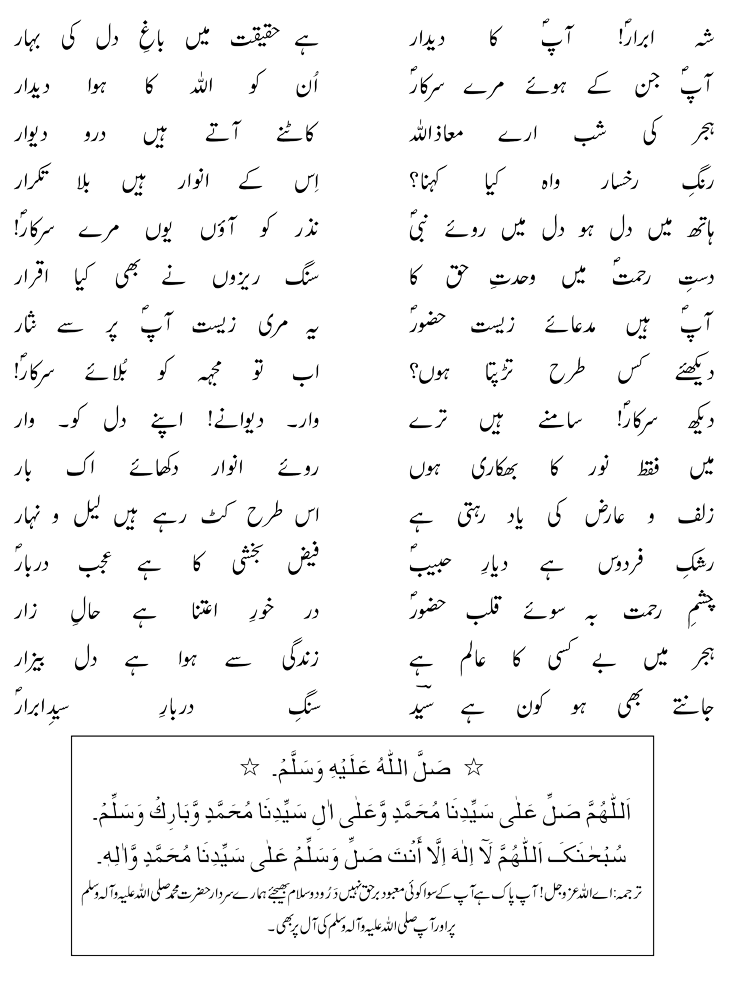 شہ ابرارؐ! آپؐ کا دیدار ہے حقیقت میں باغِ دل کی بہار
آپؐ جن کے ہوئے مرے سرکارؐ اُن کو اللہ کا ہوا دیدار
ہجر کی شب ارے معاذ اللہ کاٹنے آتے ہیں درو دیوار
رنگِ رخسار واہ کیا کہنا؟ اِس کے انوار ہیں بلا تکرار
ہاتھ میں دل ہو دل میں روئے نبیؐ نذر کو آؤں یوں مرے سرکارؐ!
دستِ رحمتؐ میں وحدتِ حق کا سنگ ریزوں نے بھی کیا اقرار
آپؐ ہیں مدعائے زیست حضورؐ یہ مری زیست آپؐ پر سے نثار
دیکھئے کس طرح تڑپتا ہوں؟ اب تو مجھ کو بُلائے سرکارؐ!
دیکھ سرکارؐ! سامنے ہیں ترے وار۔ دیوانے! اپنے دل کو۔ وار
میں فقط نور کا بھکاری ہوں روئے انوار دکھائے اک بار
زلف و عارض کی یاد رہتی ہے اس طرح کٹ رہے ہیں لیل و نہار
رشکِ فردوس ہے دیارِ حبیبؐ فیض بخشی کا ہے عجب دربارؐ
چشمِ رحمت بہ سوئے قلب حضورؐ در خورِ اعتنا ہے حالِ زار
ہجر میں بے کسی کا عالم ہے زندگی سے ہوا ہے دل بیزار
جانتے بھی ہو کون ہے سیّد سنگِ دربارِ سیدِ ابرارؐ
☆ صَلَّ اللّٰهُ عَلَيْهِ وَسَلَّمْ۔ ☆
اَللّٰهُمَّ صَلِّ عَلٰى سَيِّدِنَا مُحَمَّدٍ وَّعَلٰى اٰلِ سَيِّدِنَا مُحَمَّدٍ وَّبَارِكْ وَسَلِّمْ۔
سُبْحٰنَکَ اَللّٰهُمَّ لَآ اِلٰهَ اِلَّا أَنْتَ صَلِّ وَسَلِّمْ عَلٰى سَيِّدِنَا مُحَمَّدٍ وَّاٰلِهٖ۔
ترجمہ: اے اللہ عزوجل! آپ پاک ہے آپ کے سوا کوئی معبود برحق نہیں دَرُود و سلام بھیجئے ہمارے سردار حضرت محمد صلی اللہ علیہ وآلہ وسلم
پر اور آپ صلی اللہ علیہ وآلہ وسلم کی آل پر بھی۔